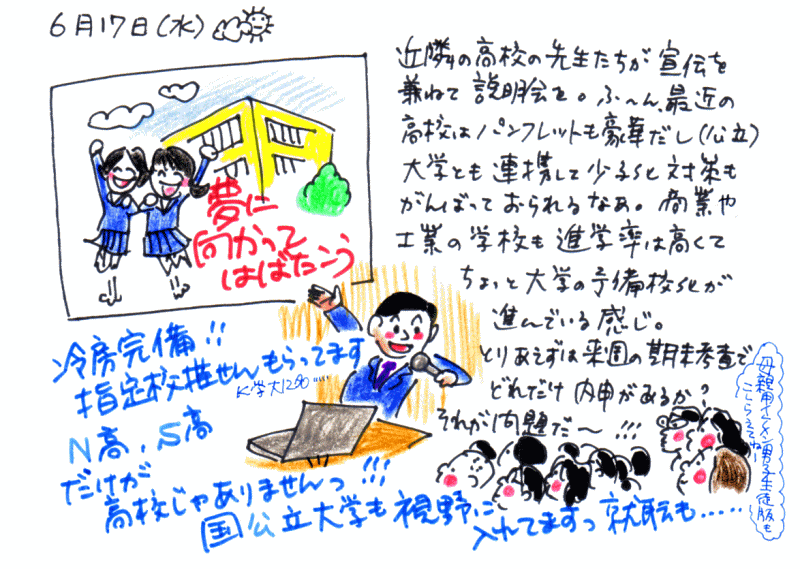 6月17日(水)
近隣の高校の先生たちが宣伝を
兼ねて説明会を。ふ〜ん、最近の
高校はパンフレットも豪華だし(公立)
大学とも連携して少子化対策も
がんばっておられるなぁ。商業や
工業の学校も進学率は高くて
ちょいと大学の予備校化が
進んでいる感じ。
とりあえずは来週の期末考査で
どれだけ内申があるか?
それが問題だ〜!!!
夢に
向かって
はばたこう
冷房完備!!
指定校推せんもらってます
K学大12名……
N高、S高
だけが
高校じゃありませんっ!!!
国公立大学も視野に
入れてますっ就職も……
母親用イケメン男子生徒版も
こしらえてねー